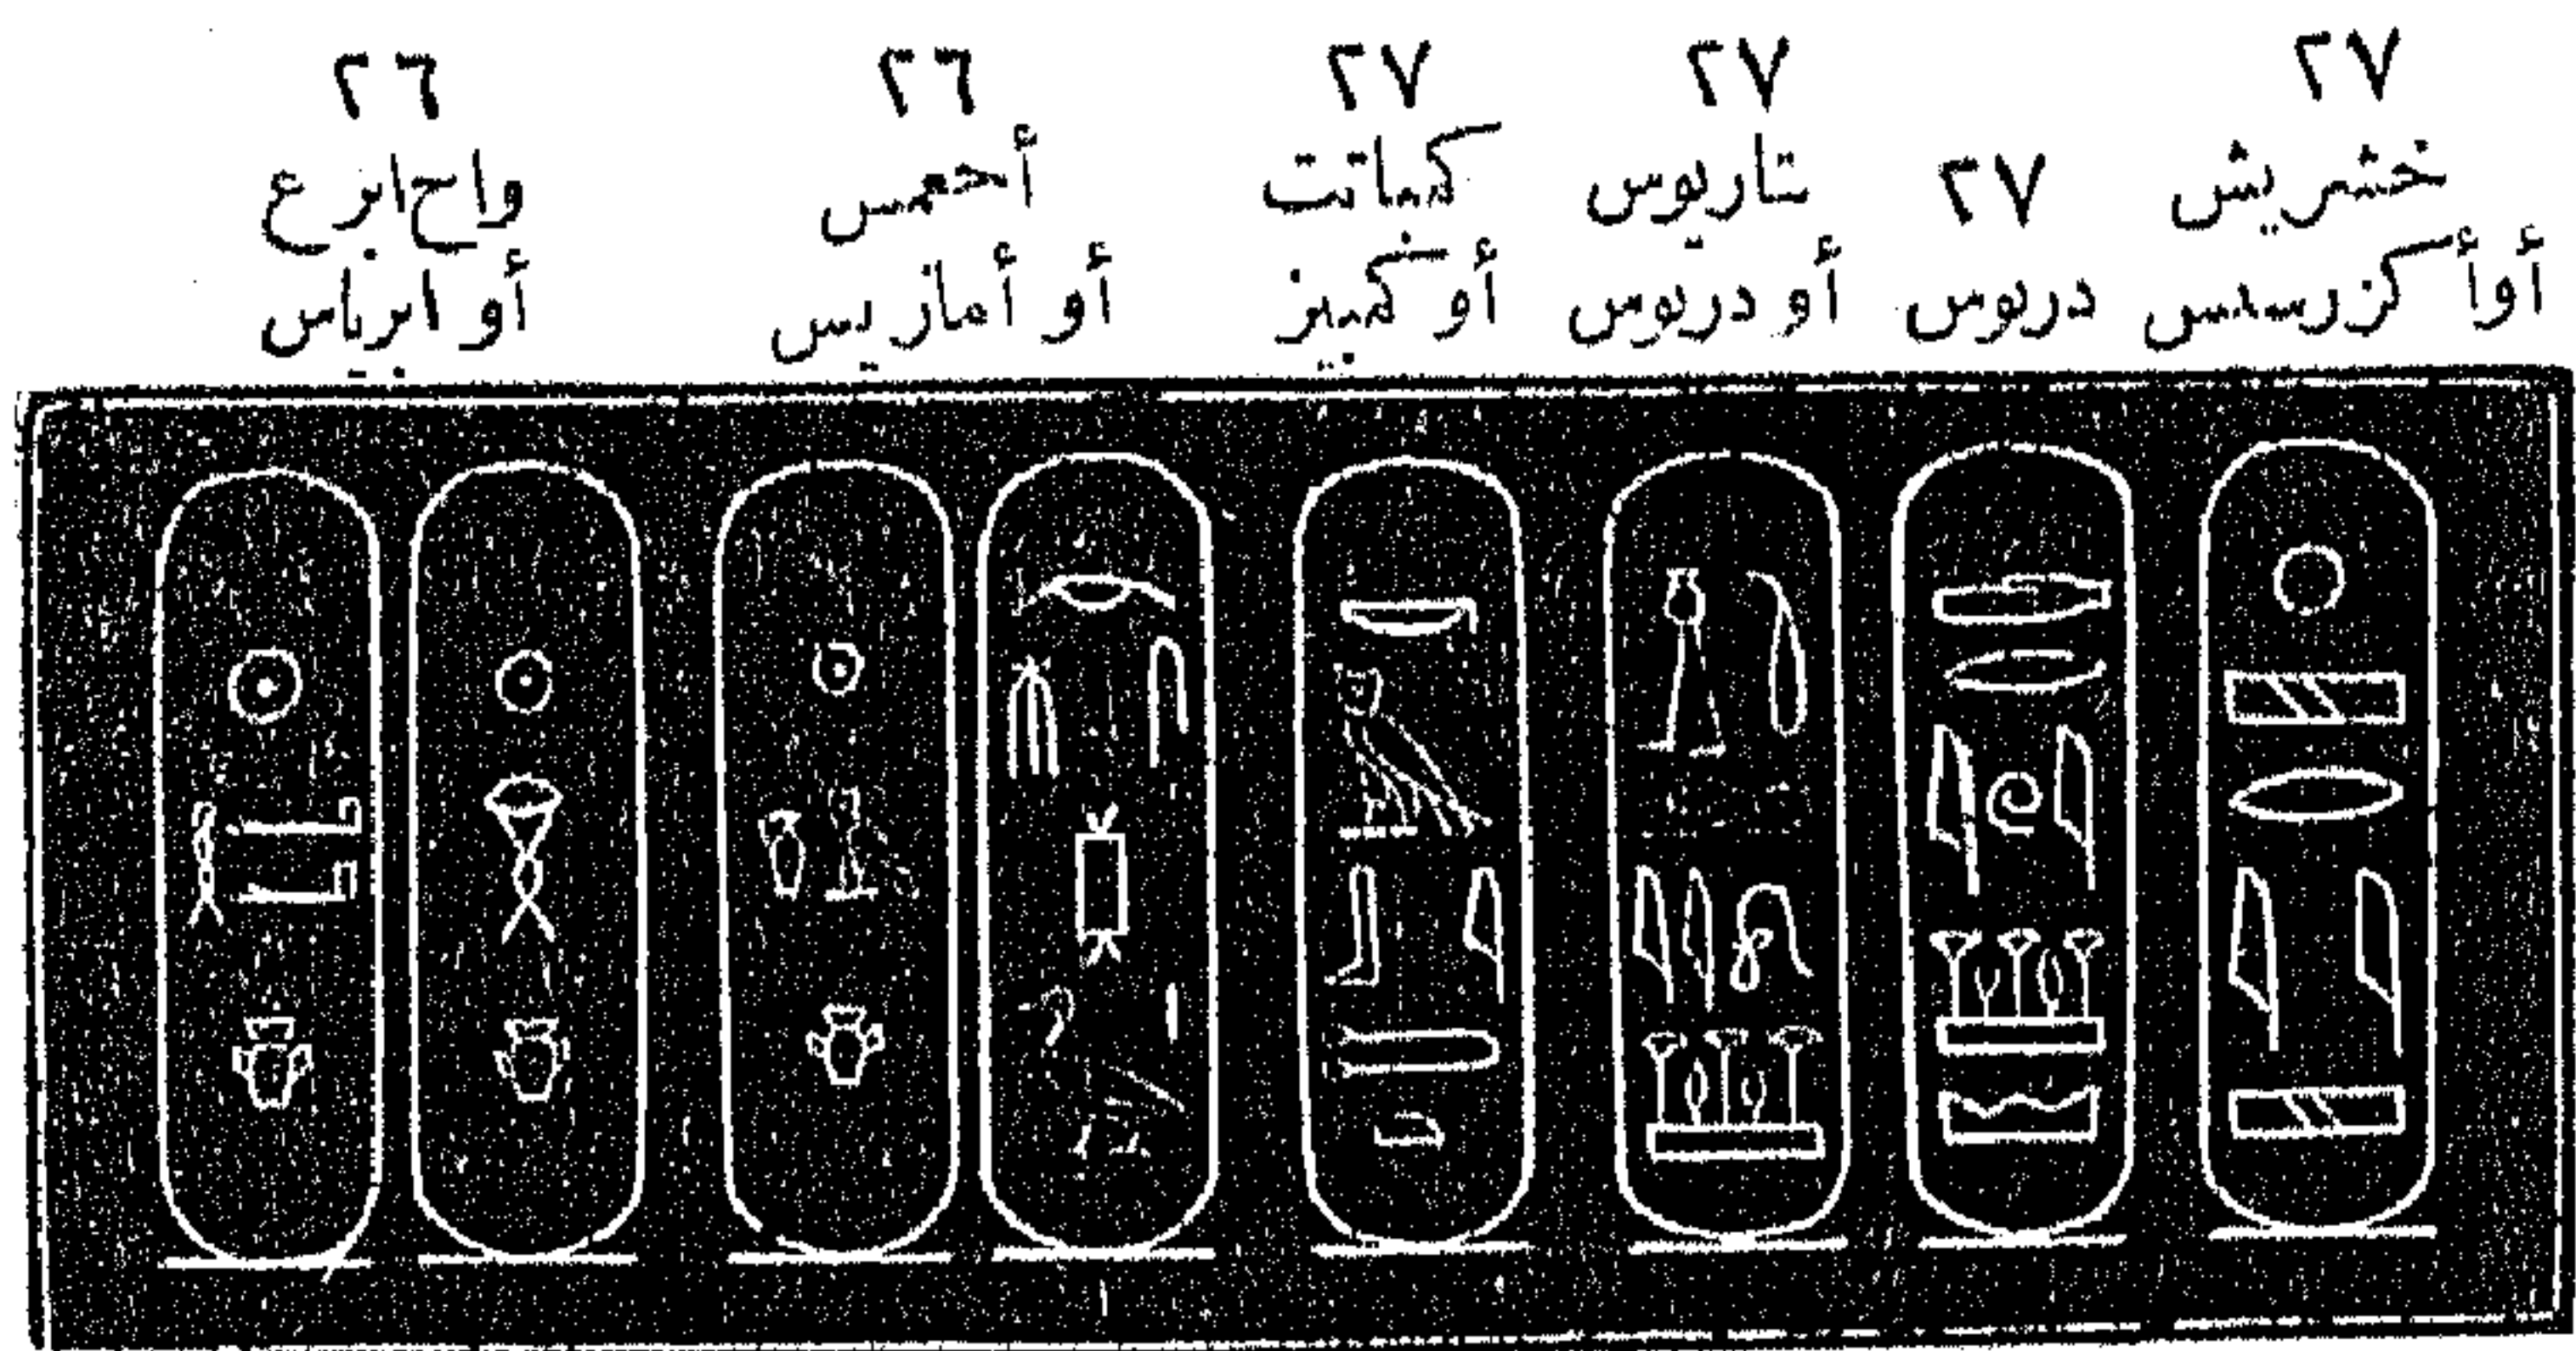 ٢٧
خشريش
أو أكزرسيس
٢٧
دريوس
٢٧
تاريوس
أو دريوس
٢٧
كمباتت
أو كمبيز
٢٦
أحعمس
أو أمازيس
٢٦
واح ابرع
أو ابرياس